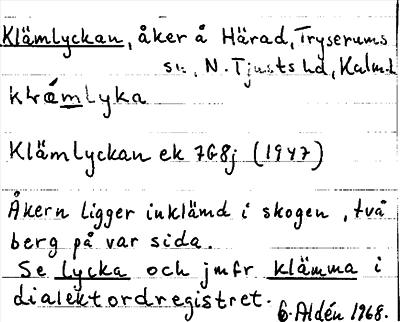 Klämlyckan, åker å Härad, Tryserums
sn, N. Tjusts hd, Kalm. l
klä́mlyka
Klämlyckan ek 7G8j (1947)
Åkern ligger inklämd i skogen, två
berg på var sida.
Se lycka och jmfr klämma i
dialektordregistret.
G. Aldén 1968.